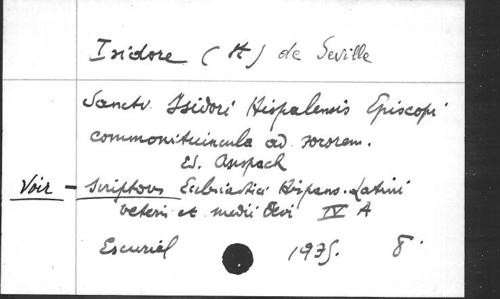 Isidore (St) de Seville
Sancti Isidori Hispalensis Episcopi
commonitiuncula ad sororem.
Ed. Anspach
Voir - Scriptores Ecclesiastici Hispano-Latini
veteris et medii Aevi IV A
Escurial 1935. 8°